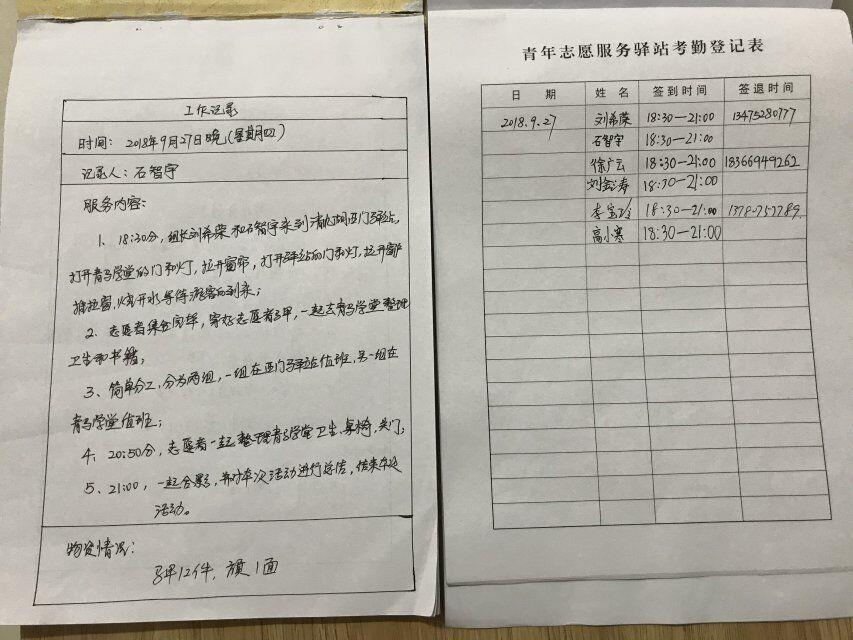 工作记录
时间：2018年9月27日晚(星期四)
记录人：石智宇
服务内容：
1、18:30分，组长刘希荣和石智宇来到清风湖西门驿站，
打开青马学堂的门和灯，拉开窗帘，打开驿站的门和灯，拉开窗帘
推拉窗，烧开水等待游客的到来；
2、志愿者集合完毕，穿好志愿者马甲，一起去青马学堂整理
卫生和书籍；
3、简单分工，分为两组，一组在西门驿站值班，另一组在
青马学堂值班；
4、20:50分，志愿者一起整理青马学堂卫生、桌椅，关门；
5、21:00，一起合影，并对本次活动进行总结，结束本次
活动。
物资情况：
马甲12件，旗1面
青年志愿服务驿站考勤登记表
日 期 姓 名 签到时间 签退时间
2018.9.27 刘希荣 18:30—21:00 13475280777
石智宇 18:30—21:00
徐广云 18:30—21:00 18366949262
刘金涛 18:30—21:00
李宝玲 18:30—21:00
高小寒 18:30—21:00